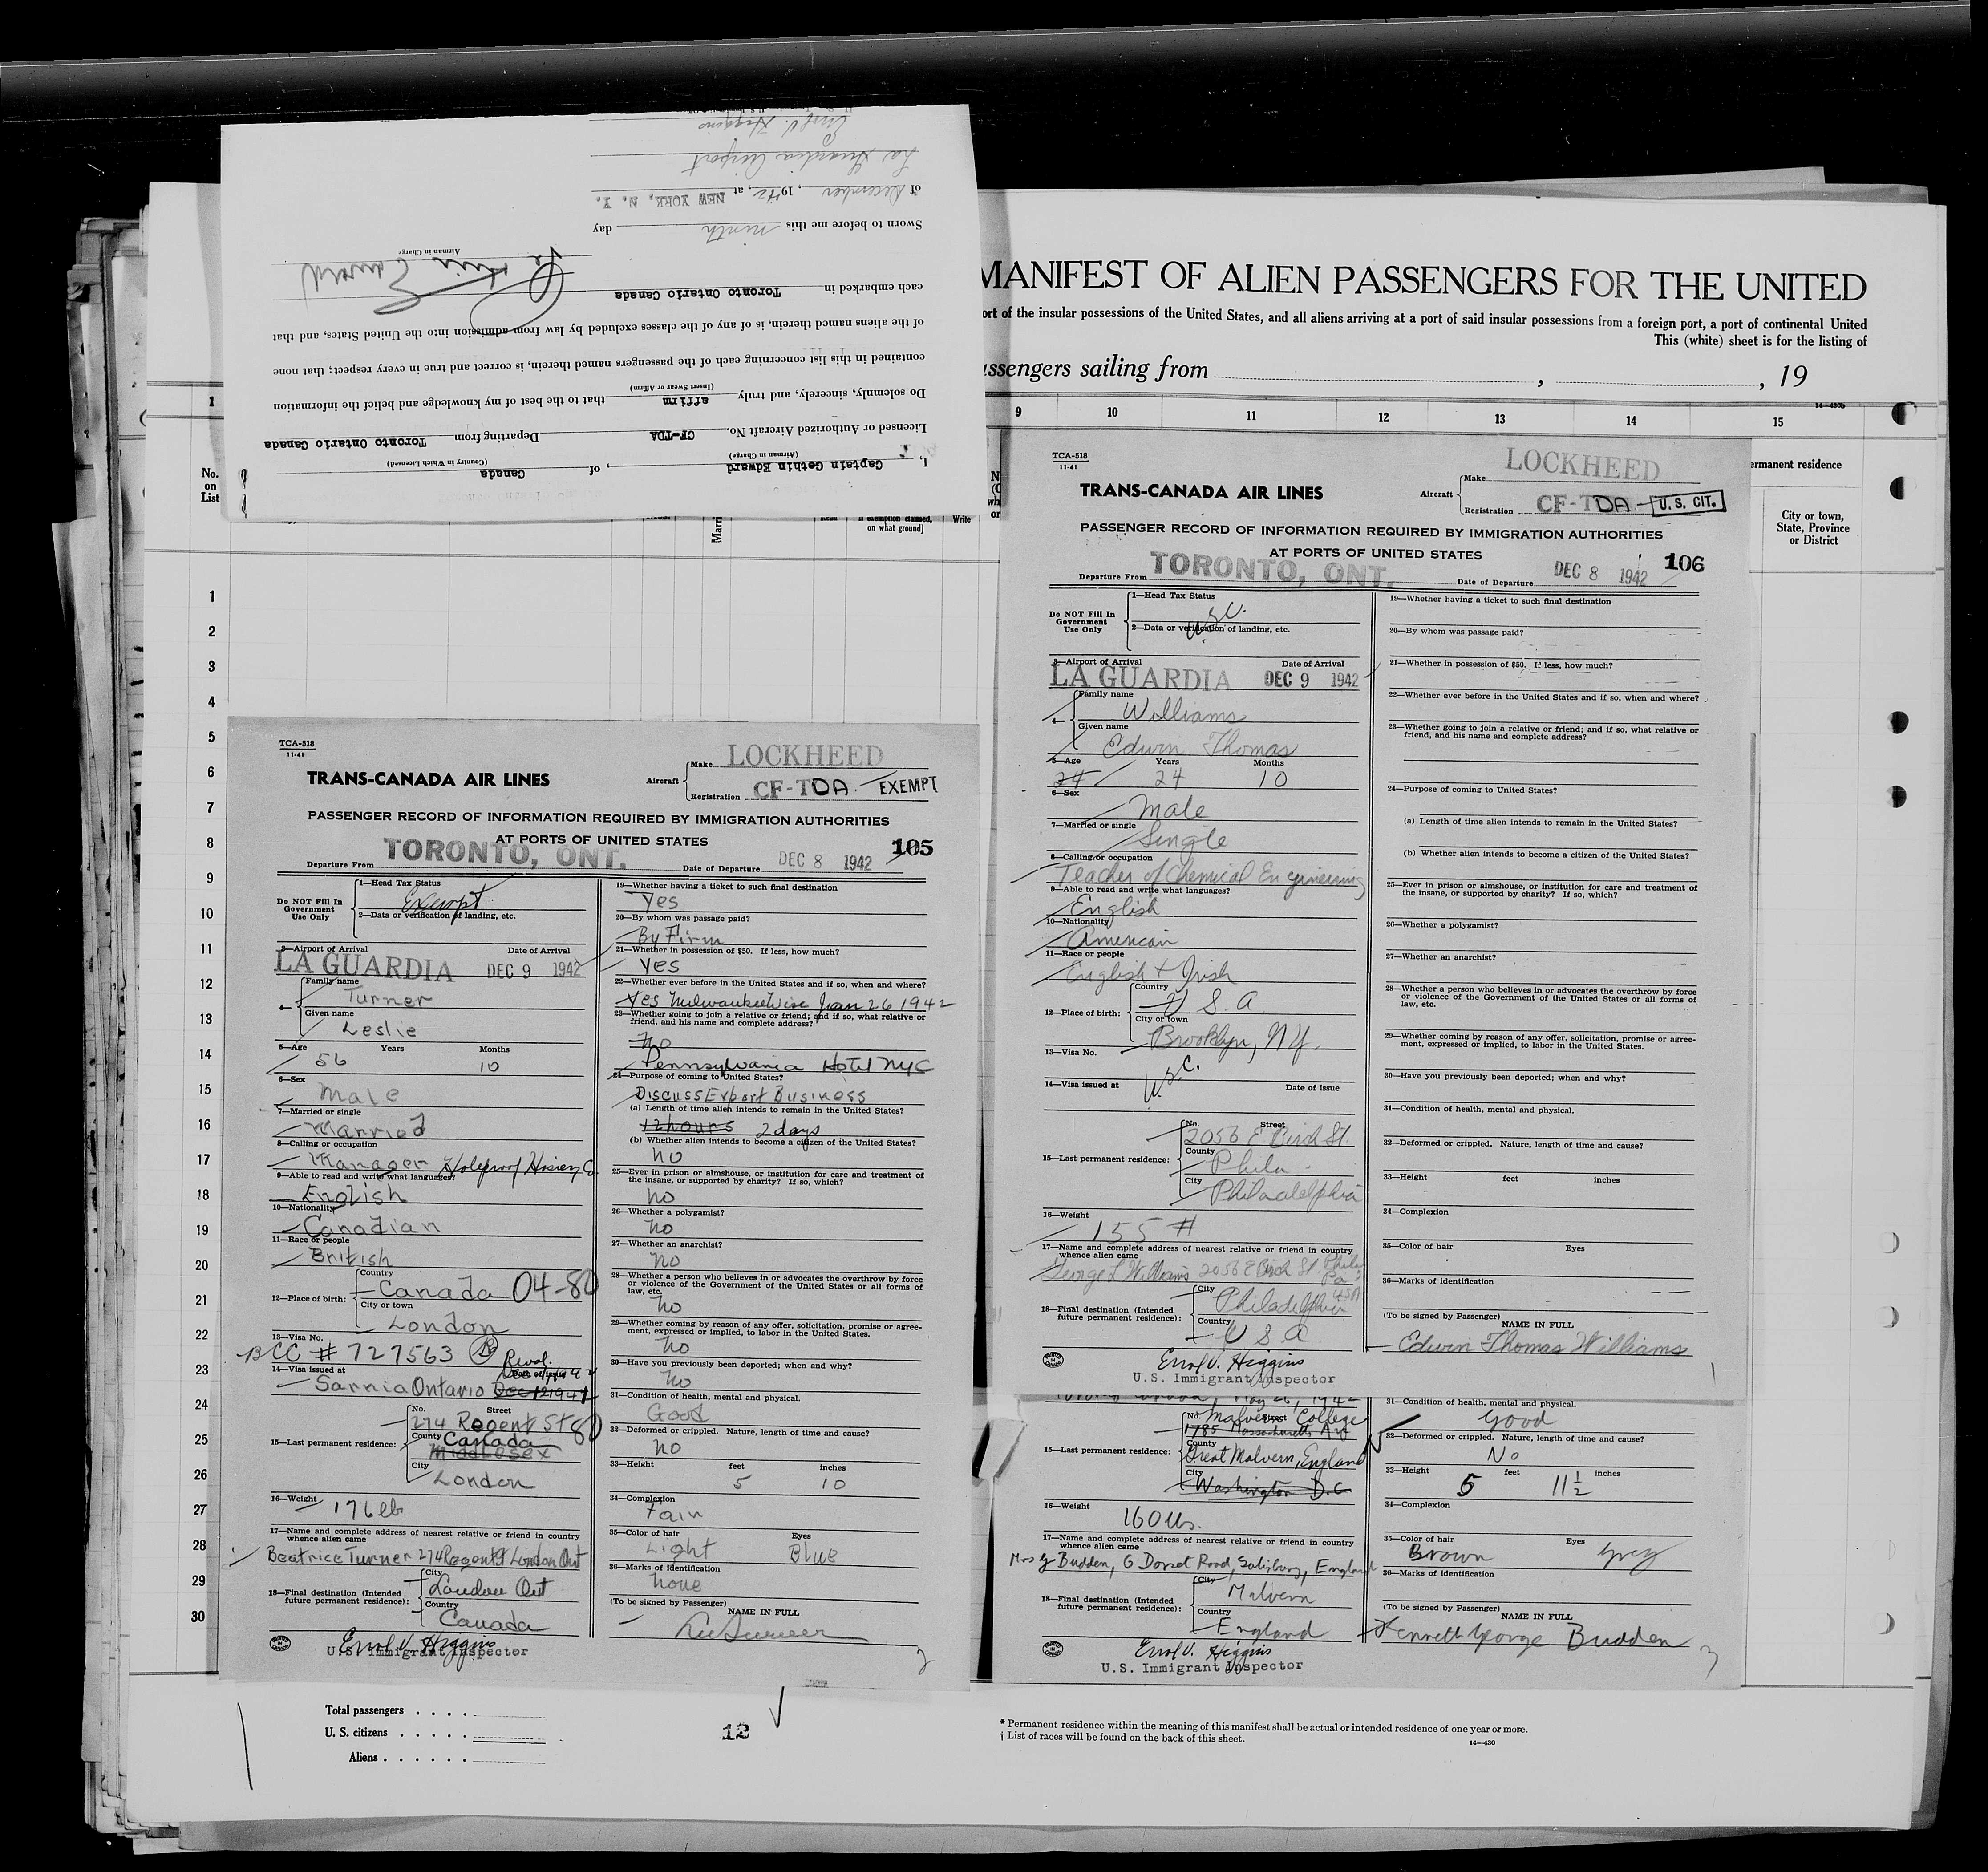 Errol V. Higgins
La Guardia Airport
of December, 1942, at NEW YORK, N. Y.
Sworn to before me this ninth day
Airman in Charge
each embarked in Toronto Ontario Canada
of the aliens named therein, is of any of the classes excluded by law from admission into the United States, and that
contained in this list concerning each of the passengers named therein, is correct and true in every respect; that none
(Insert Swear or Affirm)
Do solemnly, sincerely, and truly affirm that to the best of my knowledge and belief the information
Licensed or Authorized Aircraft No. CF-TDA Departing from Toronto Ontario Canada
(Airman in Charge) (Country in Which Licensed)
I, Captain Gethin Edward, of Canada
MANIFEST OF ALIEN PASSENGERS FOR THE UNITED
ort of the insular possessions of the United States, and all aliens arriving at a port of said insular possessions from a foreign port, a port of continental United
This (white) sheet is for the listing of
assengers sailing from , , 19
1 9 10 11 12 13 14 15
14—430b
No.
on
List
ermanent residence
City or town,
State, Province
or District
Read
if exemption claimed,
on what ground]
Write
1
2
3
4
5
6
7
8
9
10
11
12
13
14
15
16
17
18
19
20
21
22
23
24
25
26
27
28
29
30
TCA-518
11-41
TRANS-CANADA AIR LINES
Aircraft
Make LOCKHEED
Registration CF-TDA — EXEMPT
PASSENGER RECORD OF INFORMATION REQUIRED BY IMMIGRATION AUTHORITIES
AT PORTS OF UNITED STATES
105
Departure From TORONTO, ONT. Date of Departure DEC 8 1942
Do NOT Fill In
Government
Use Only
1—Head Tax Status
Exempt.
2—Data or verification of landing, etc.
3—Airport of Arrival Date of Arrival
LA GUARDIA DEC 9 1942
4—
Family name
Turner
Given name
Leslie
5—Age Years Months
56 10
6—Sex
Male
7—Married or single
Married
8—Calling or occupation
Manager Holeproof Hosiery Co
9—Able to read and write what languages?
English
10—Nationality
Canadian
11—Race or people
British
12—Place of birth:
Country
Canada 04-80
City or town
London
13—Visa No.
BCC # 727563
14—Visa issued at Date of issue
Sarnia Ontario
15—Last permanent residence:
No. Street
274 Regent St 80
County Canada
Middlesex
City
London
16—Weight
176 lb
17—Name and complete address of nearest relative or friend in country
whence alien came
Beatrice Turner 274 Regent St London Ont
18—Final destination (Intended
future permanent residence):
City
London Ont
Country
Canada
Errol V. Higgins
U.S. Immigrant Inspector
19—Whether having a ticket to such final destination
Yes
20—By whom was passage paid?
By Firm
21—Whether in possession of $50. If less, how much?
Yes
22—Whether ever before in the United States and if so, when and where?
Yes Milwaukee Wisc Jan 26 1942
23—Whether going to join a relative or friend; and if so, what relative or
friend, and his name and complete address?
No
Pennsylvania Hotel NYC
24—Purpose of coming to United States?
Discuss Export Business
(a) Length of time alien intends to remain in the United States?
12 hours 2 days
(b) Whether alien intends to become a citizen of the United States?
No
25—Ever in prison or almshouse, or institution for care and treatment of
the insane, or supported by charity? If so, which?
No
26—Whether a polygamist?
No
27—Whether an anarchist?
No
28—Whether a person who believes in or advocates the overthrow by force
or violence of the Government of the United States or all forms of
law, etc.
No
29—Whether coming by reason of any offer, solicitation, promise or agree-
ment, expressed or implied, to labor in the United States.
No
30—Have you previously been deported; when and why?
No
31—Condition of health, mental and physical.
Good
32—Deformed or crippled. Nature, length of time and cause?
No
33—Height feet inches
5 10
34—Complexion
Fair
35—Color of hair Eyes
Light Blue
36—Marks of identification
None
(To be signed by Passenger)
NAME IN FULL
2
TCA-518
11-41
TRANS-CANADA AIR LINES
Aircraft
Make LOCKHEED
Registration CF-TDA — U. S. CIT.
PASSENGER RECORD OF INFORMATION REQUIRED BY IMMIGRATION AUTHORITIES
AT PORTS OF UNITED STATES
106
Departure From TORONTO, ONT. Date of Departure DEC 8 1942
Do NOT Fill In
Government
Use Only
1—Head Tax Status
U.S.C.
2—Data or verification of landing, etc.
3—Airport of Arrival Date of Arrival
LA GUARDIA DEC 9 1942
4—
Family name
Williams
Given name
Edwin Thomas
5—Age Years Months
24 24 10
6—Sex
Male
7—Married or single
Single
8—Calling or occupation
Teacher of Chemical Engineering
9—Able to read and write what languages?
English
10—Nationality
American
11—Race or people
English + Irish
12—Place of birth:
Country
U S. A
City or town
Brooklyn, NY.
13—Visa No.
U.S.C.
14—Visa issued at Date of issue
15—Last permanent residence:
No. Street
2056 E Birch St.
County
Phila.
City
Philadelphia
16—Weight
155 #
17—Name and complete address of nearest relative or friend in country
whence alien came
George L Williams 2056 E Birch St Phila Pa. USA
18—Final destination (Intended
future permanent residence):
City
Philadelphia
Country
U S. A
Errol V. Higgins
U.S. Immigrant Inspector
19—Whether having a ticket to such final destination
20—By whom was passage paid?
21—Whether in possession of $50. If less, how much?
22—Whether ever before in the United States and if so, when and where?
23—Whether going to join a relative or friend; and if so, what relative or
friend, and his name and complete address?
24—Purpose of coming to United States?
(a) Length of time alien intends to remain in the United States?
(b) Whether alien intends to become a citizen of the United States?
25—Ever in prison or almshouse, or institution for care and treatment of
the insane, or supported by charity? If so, which?
26—Whether a polygamist?
27—Whether an anarchist?
28—Whether a person who believes in or advocates the overthrow by force
or violence of the Government of the United States or all forms of
law, etc.
29—Whether coming by reason of any offer, solicitation, promise or agree-
ment, expressed or implied, to labor in the United States.
30—Have you previously been deported; when and why?
31—Condition of health, mental and physical.
32—Deformed or crippled. Nature, length of time and cause?
33—Height feet inches
34—Complexion
35—Color of hair Eyes
36—Marks of identification
(To be signed by Passenger)
NAME IN FULL
Edwin Thomas Williams
1
May 26, 1942
15—Last permanent residence:
No. Street
Malvern College
1785 Massachusetts Av
County
Great Malvern, England
City
Washington D.C.
16—Weight
160 lbs.
17—Name and complete address of nearest relative or friend in country
whence alien came
Mrs Budden, 6 Dorset Road, Salisbury, England
18—Final destination (Intended
future permanent residence):
City
Malvern
Country
England
Errol V. Higgins
U.S. Immigrant Inspector
31—Condition of health, mental and physical.
Good
32—Deformed or crippled. Nature, length of time and cause?
No
33—Height feet inches
5 11½
34—Complexion
35—Color of hair Eyes
Brown Grey
36—Marks of identification
(To be signed by Passenger)
NAME IN FULL
Kenneth George Budden
3
Total passengers . . . .
U. S. citizens . . . . .
Aliens . . . . . .
12
* Permanent residence within the meaning of this manifest shall be actual or intended residence of one year or more.
† List of races will be found on the back of this sheet.
14—430